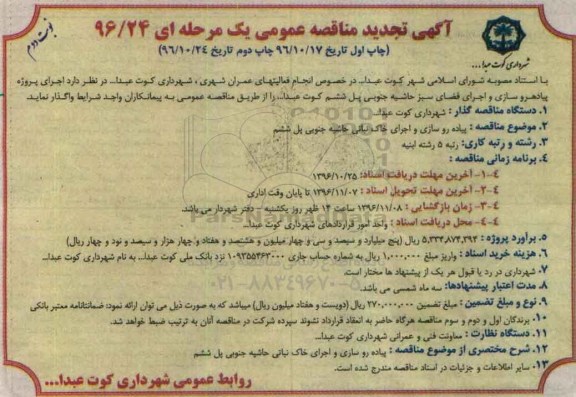 نوبت دوم
آگهی تجدید مناقصه عمومی یک مرحله ای ۹۶/۲۴
(چاپ اول تاریخ ۹۶/۱۰/۱۷ چاپ دوم تاریخ ۹۶/۱۰/۲٤)
شهرداری کوت عبدا...
با استناد مصوبه شورای اسلامی شهر کوت عبدا... در خصوص انجام فعالیتهای عمران شهری ، شهرداری کوت عبدا... در نظر دارد اجرای پروژه
پیاده‌رو سازی و اجرای فضای سبز حاشیه جنوبی پل ششم کوت عبدا... را از طریق مناقصه عمومی به پیمانکاران واجد شرایط واگذار نماید.
۱. دستگاه مناقصه گذار : شهرداری کوت عبدا...
۲. موضوع مناقصه : پیاده رو سازی و اجرای خاک نباتی حاشیه جنوبی پل ششم
۳. رشته و رتبه کاری: رتبه ۵ رشته ابنیه
۴. برنامه زمانی مناقصه :
۴-۱- آخرین مهلت دریافت اسناد: ۱۳۹۶/۱۰/۲۵
۴-۲- آخرین مهلت تحویل اسناد : ۱۳۹۶/۱۱/۰۷ تا پایان وقت اداری
۴-۳- زمان بازگشایی : ۱۳۹۶/۱۱/۰۸ ساعت ۱۴ ظهر روز یکشنبه - دفتر شهردار می باشد.
۴-۴- محل دریافت اسناد : واحد امور قراردادهای شهرداری کوت عبدا...
۵. برآورد پروژه : ۵,۳۳۴,۸۷۴,۳۹۴ ریال (پنج میلیارد و سیصد و سی و چهار میلیون و هشتصد و هفتاد و چهار هزار و سیصد و نود و چهار ریال)
۶. هزینه خرید اسناد : واریز مبلغ ۱,۰۰۰,۰۰۰ ریال به شماره حساب جاری ۰۱۰۹۲۵۵۴۶۳۰۰۰ نزد بانک ملی کوت عبدا... به نام شهرداری کوت عبدا...
۷. شهرداری در رد یا قبول هر یک از پیشنهاد ها مختار است.
۸. مدت اعتبار پیشنهادها: سه ماه شمسی می باشد.
۹. نوع و مبلغ تضمین : مبلغ تضمین ۲۷۰,۰۰۰,۰۰۰ ریال (دویست و هفتاد میلیون ریال) میباشد که به صورت ذیل می توان ارائه نمود: ضمانتنامه معتبر بانکی
۱۰. برندگان اول و دوم و سوم مناقصه هرگاه حاضر به انعقاد قرارداد نشوند سپرده شرکت در مناقصه آنان به ترتیب ضبط خواهد شد.
۱۱. دستگاه نظارت : معاونت فنی و عمرانی شهرداری کوت عبدا...
۱۲. شرح مختصری از موضوع مناقصه : پیاده رو سازی و اجرای خاک نباتی حاشیه جنوبی پل ششم
۱۳. سایر اطلاعات و جزئیات در اسناد مناقصه مندرج شده است.
روابط عمومی شهرداری کوت عبدا...
ParsNamadData
۰۲۱-۸۸۳۴۹۶۷۰-۵